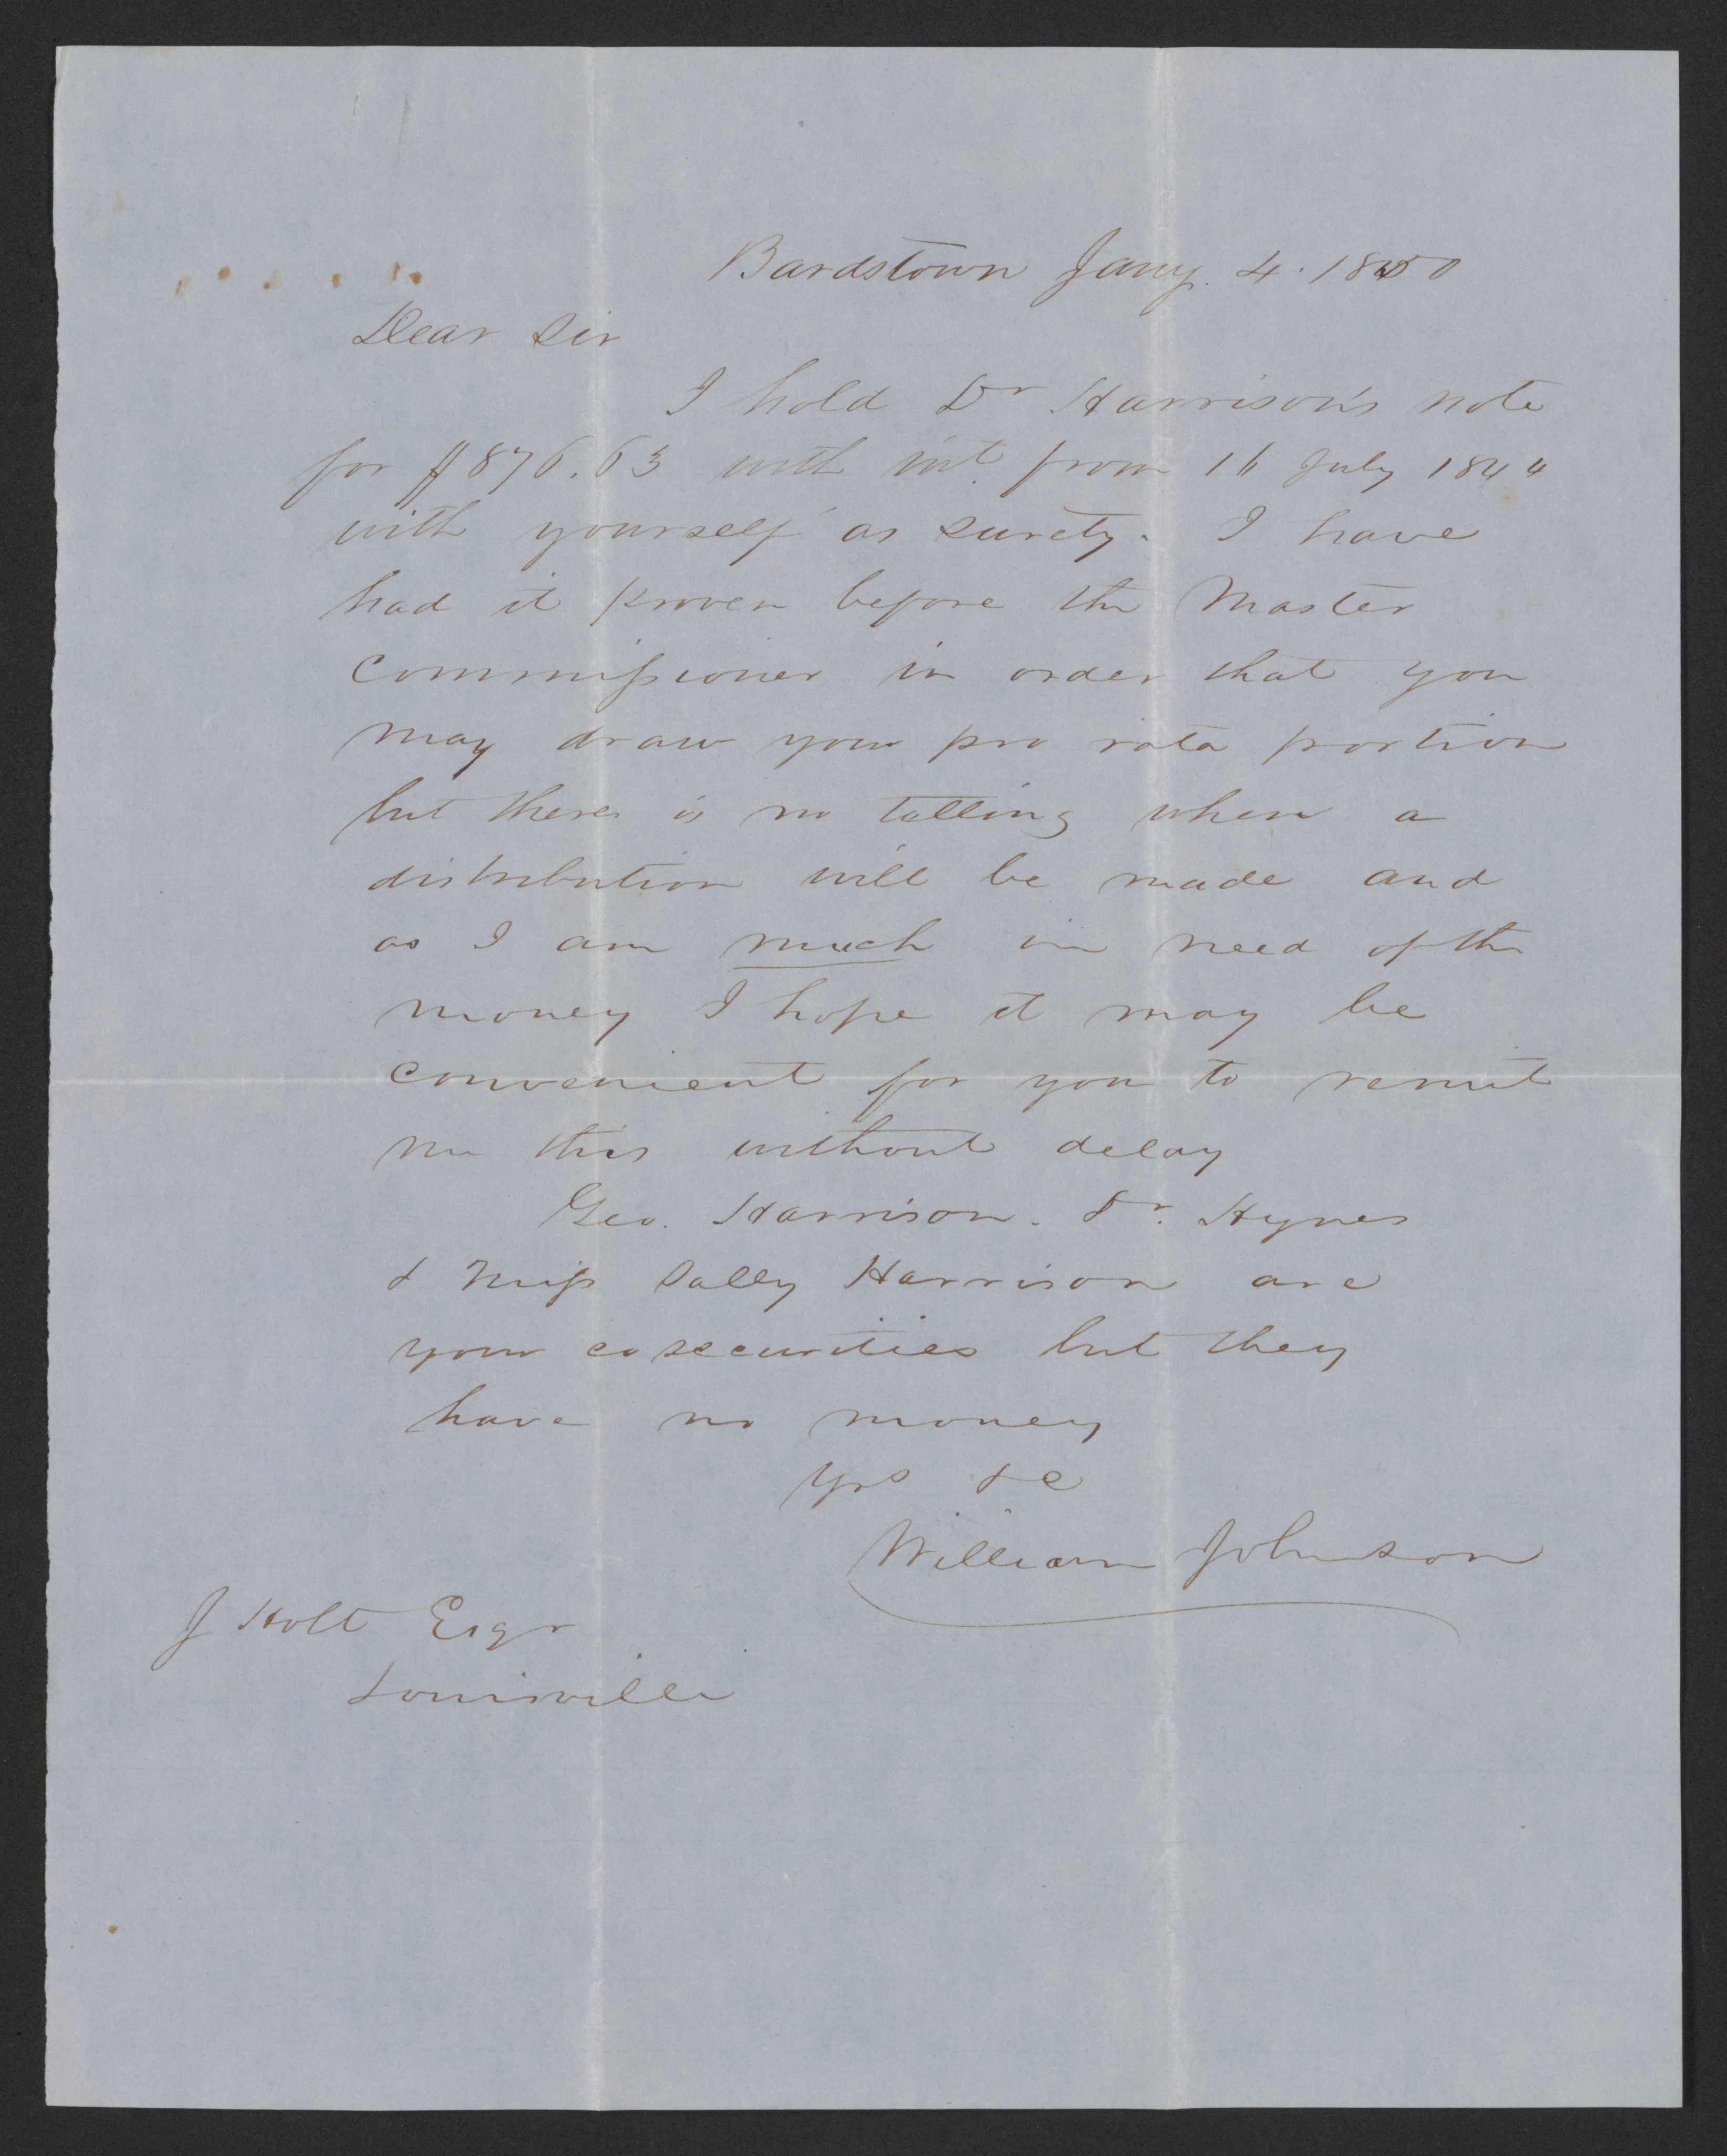 Bardstown Jany. 4. 1850
Dear Sir
I hold Dr Harrison's note
for $876.63 with int. from 16 July 1844
with yourself as surety. I have
had it proven before the Master
Commissioner in order that you
may draw your pro rata portion
but there is no telling when a
distribution will be made and
as I am much in need of the
money I hope it may be
convenient for you to remit
me this without delay
Geo. Harrison. Dr. Hynes
& Miss Sally Harrison are
your cosecurities but they
have no money
Yrs &c
William Johnson
J Holt Esqr
Louisville